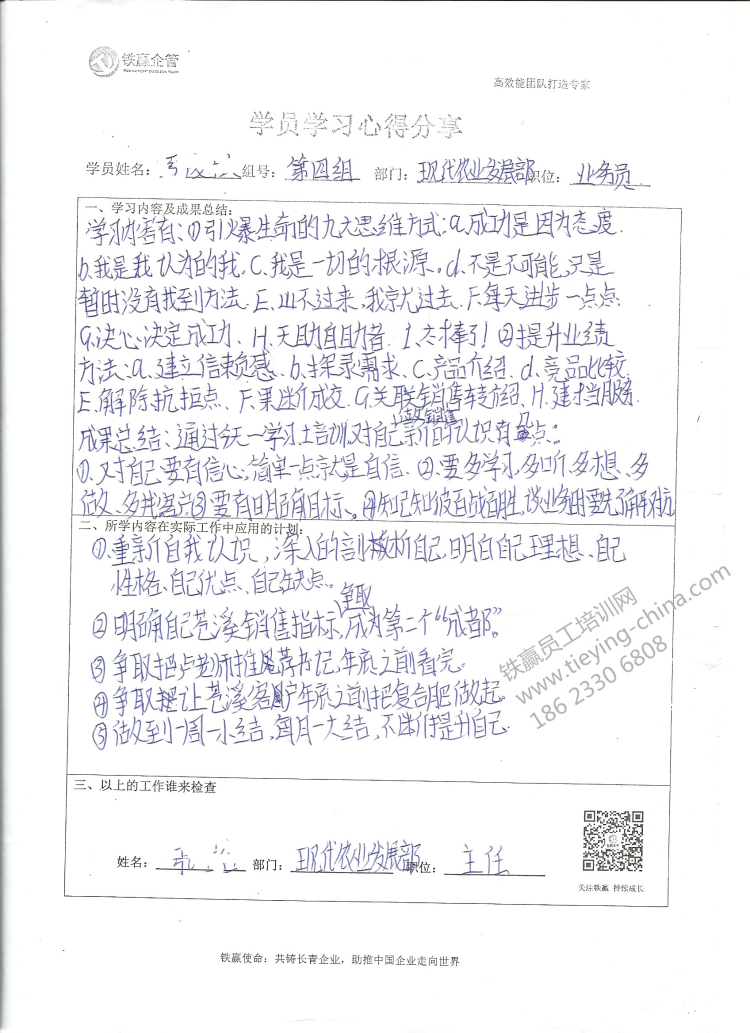 铁赢企管
高效能团队打造专家
学员学习心得分享
学员姓名: 组号: 第四组 部门: 现代农业发展部 职位: 业务员
一、学习内容及成果总结:
学习内容有:①引爆生命的九大思维方式:a.成功是因为态度.
b.我是我认为的我.C.我是一切的根源。d.不是不可能,只是
暂时没有找到方法.E.山不过来,我就过去.F.每天进步一点点.
G.决心决定成功.H.天助自助者.I.太棒了!②提升业绩
方法:a.建立信赖感.b.探录需求.C.产品介绍.d.竞品比较.
E.解除抗拒点.F.果断成交.G.关联销售转介绍.H.建档服务.
做销售
成果总结:通过今天一学习土培训对自己新的认识有几点:
①.对自己要有信心,简单一点就是自信.②.要多学习、多听、多想、多
做、多找客户③要有明确目标。④知己知彼百战百胜,谈业务时要先了解对方
二、所学内容在实际工作中应用的计划:
①.重新自我认识,深入的剖析自己,明白自己理想、自己
性格、自己优点、自己缺点。
争取
②明确自己苍溪销售指标,成为第二个“成都”。
③争取把卢老师推荐书记,年底之前看完.
④争取让苍溪客户年底之前把复合肥做起.
⑤做到一周一小结,每月一大结,不断提升自己.
铁赢员工培训网
www.tieying-china.com
186 2330 6808
三、以上的工作谁来检查
姓名: 部门: 现代农业发展部 职位: 主任
关注铁赢 持续成长
铁赢使命:共铸长青企业,助推中国企业走向世界